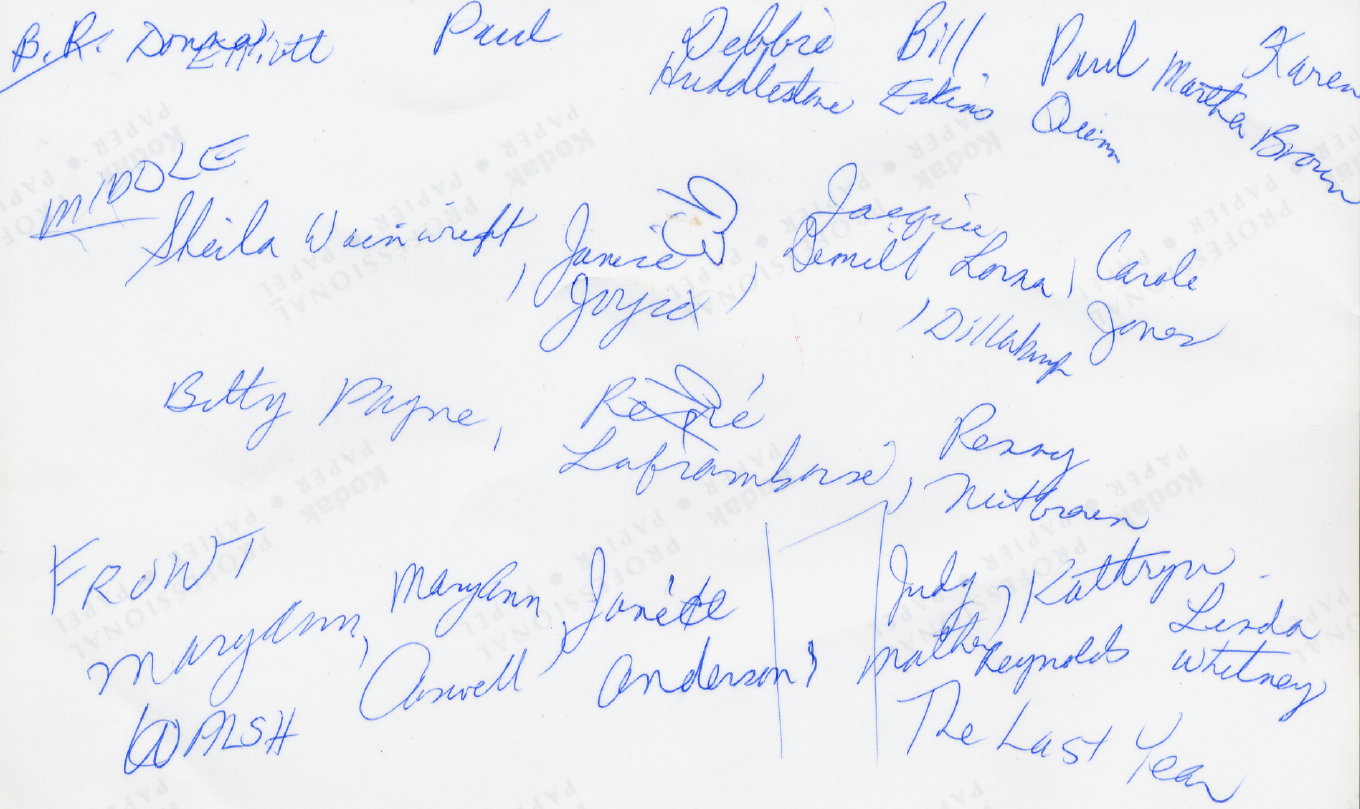 B.R. Donna Elliott Paul Debbie Huddlestone Bill Eakins Paul Quinn Martha Karen Brown
MIDDLE
Sheila Wainwright, Janice Joyce, Jacquie Demill, Lorna Dillabough, Carole Jones
Betty Payne, René Laframboise, Penny Nutbrown
FRONT
Maryann WALSH, MaryAnn Caswell, Janette Anderson, Judy Mather, Kathryn Reynolds Linda Whitney
The Last Year
Kodak
PROFESSIONAL
PAPER • PAPIER • PAPEL